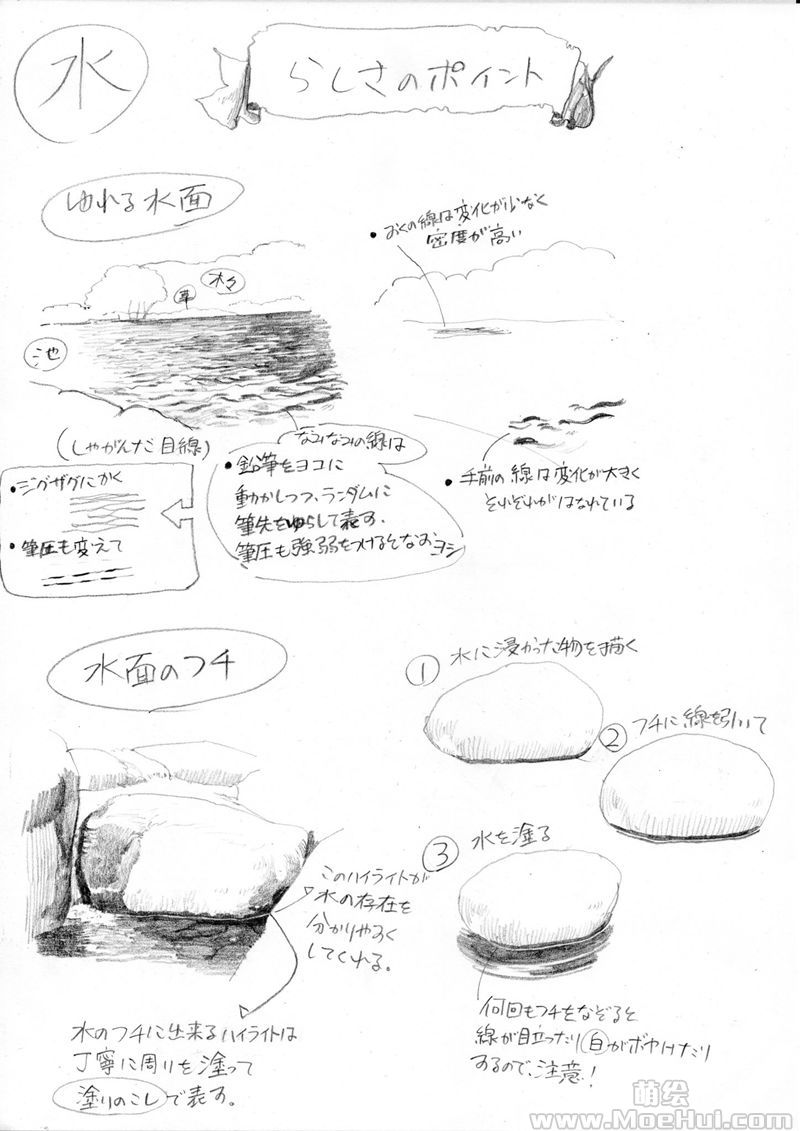 水
らしさのポイント
ゆれる水面
木々
草
池
(しゃがんだ目線)
・おくの線は変化が少なく
密度が高い
なみなみの線は
・鉛筆をヨコに
動かしつつ、ランダムに
筆先をゆらして表す。
筆圧も強弱をつけるとなおヨシ
・ジグザグにかく
・筆圧も変えて
・手前の線は変化が大きく
それぞれがはなれている
水面のフチ
このハイライトが
水の存在を
分かりやすく
してくれる。
水のフチに出来るハイライトは
丁寧に周りを塗って
塗りのこしで表す。
① 水に浸かった物を描く
② フチに線を引いて
③ 水を塗る
何回もフチをなぞると
線が目立ったり白がボヤけたり
するので、注意!
萌绘
www.MoeHui.com